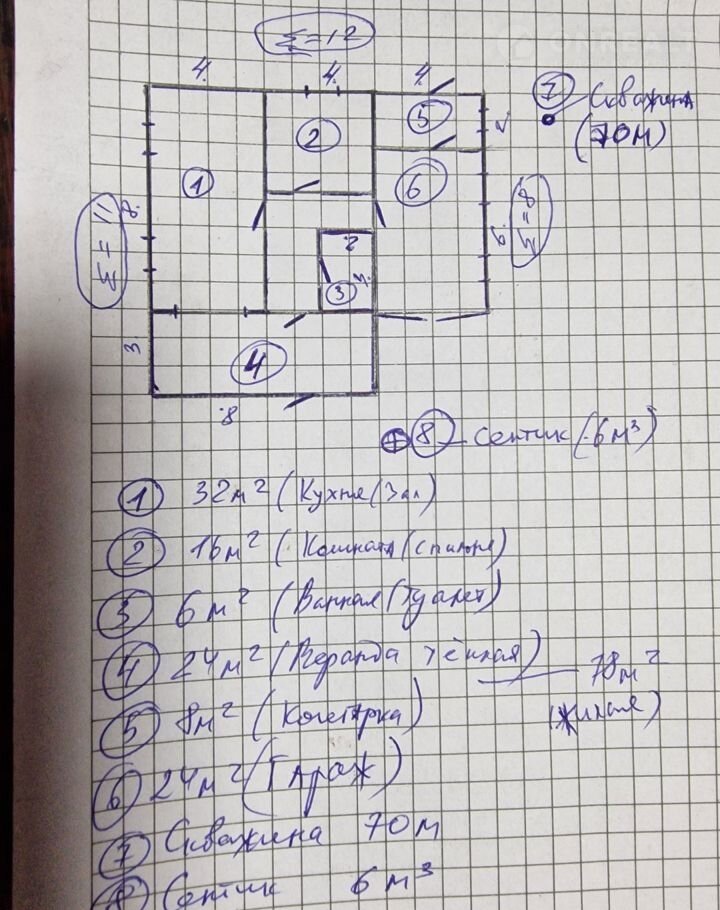 Σ=12
4. 4. 4.
7 Скважина
(70м)
5
2
2
1
6
8.
Σ=11
6.
Σ=8
2
3.
3
3
4
8
8 - септик (6м³)
1 32м² (Кухня/Зал)
2 16м² (Комната/спальня)
3 6м² (Ванная/Туалет)
4 24м² (Веранда тёплая) — 78м²
(жилая)
5 8м² (Кочегарка)
6 24м² (Гараж)
7 Скважина 70м
8 Септик 6м³